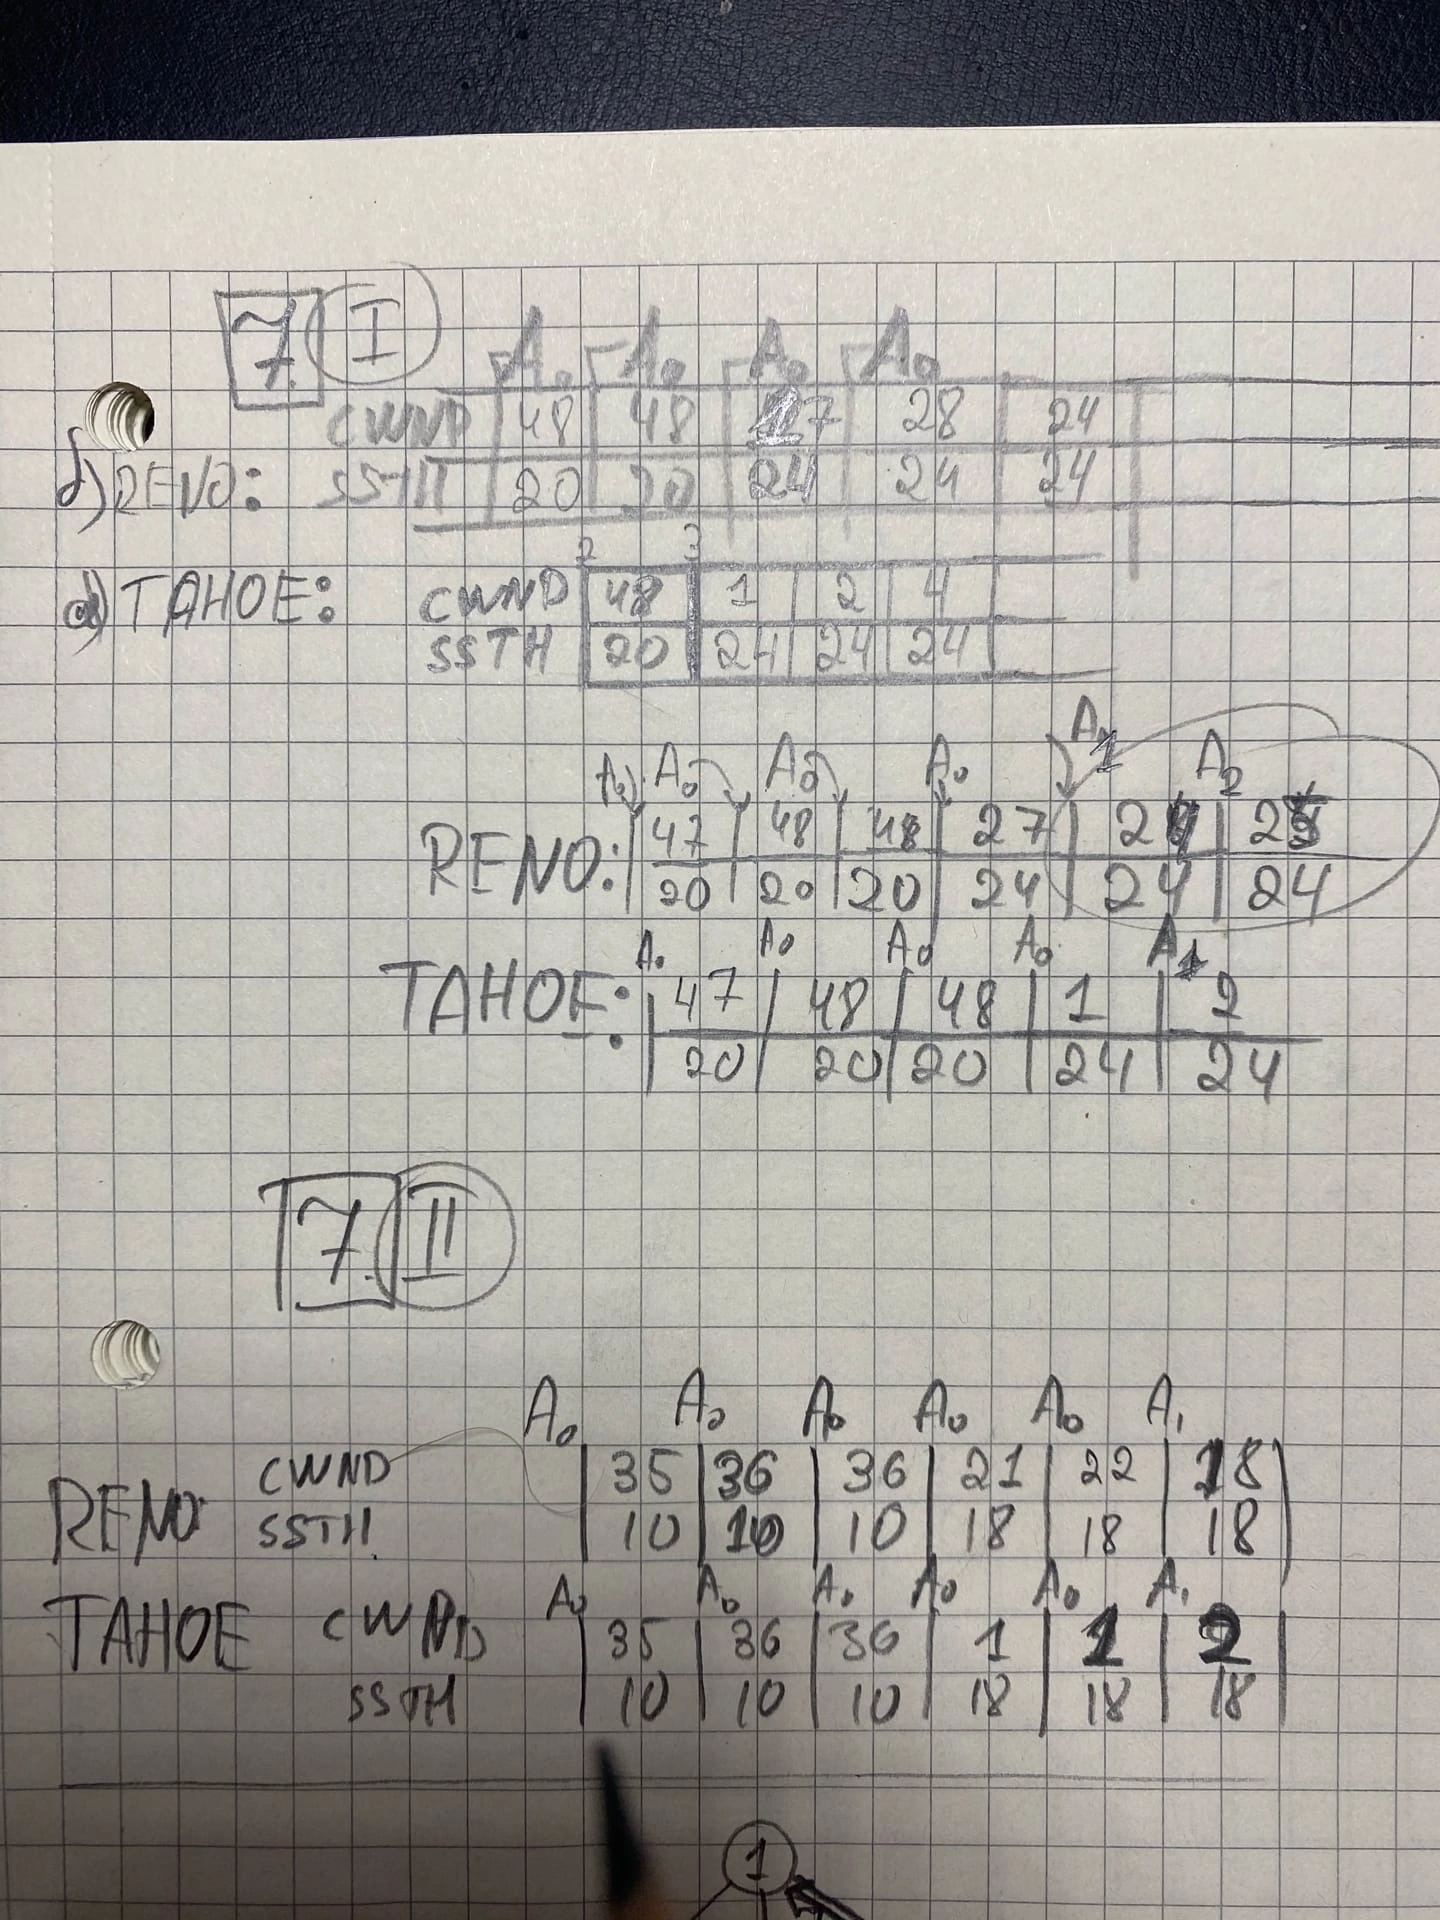 7. I
A₀ A₀ A₀ A₀
CWND 48 48 27 28 24
b) RENO: SSTH 20 20 24 24 24
2 3
a) TAHOE: CWND 48 1 2 4
SSTH 20 24 24 24
A₀ A₀ A₀ A₀ A₁ A₂
RENO: 47 48 48 27 24 25
20 20 20 24 24 24
A₀ A₀ A₀ A₀ A₁
TAHOE: 47 48 48 1 2
20 20 20 24 24
7. II
A₀ A₀ A₀ A₀ A₀ A₁
CWND 35 36 36 21 22 18
RENO SSTH 10 10 10 18 18 18
A₀ A₀ A₀ A₀ A₀ A₁
TAHOE CWND 35 36 36 1 1 2
SSTH 10 10 10 18 18 18
1